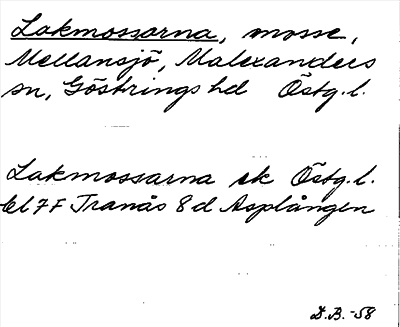 Lakmossarna, mosse,
Mellansjö, Malexanders
sn, Göstrings hd Östg.l.
Lakmossarna ek Östg.l.
bl 7 F Tranås 8 d Asplången
D.B. -58